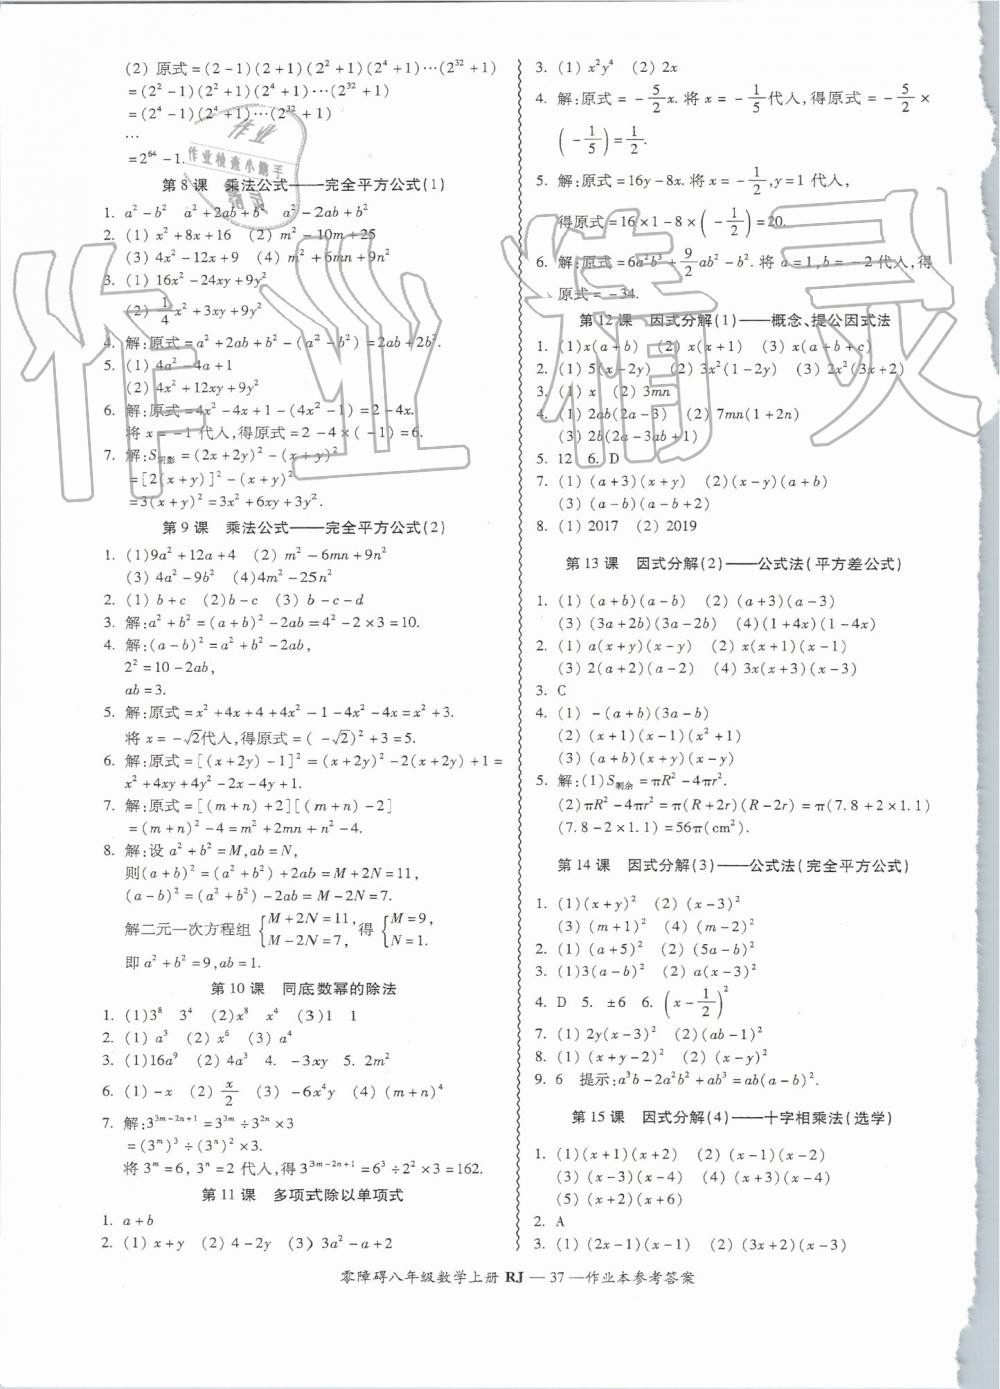 (2) 原式=(2-1)(2+1)(2²+1)(2⁴+1)⋯(2³²+1)
=(2²-1)(2²+1)(2⁴+1)⋯(2³²+1)
=(2⁴-1)(2⁴+1)⋯(2³²+1)
⋯
=2⁶⁴-1.
第8课 乘法公式——完全平方公式(1)
1. a²-b² a²+2ab+b² a²-2ab+b²
2. (1) x²+8x+16 (2) m²-10m+25
(3) 4x²-12x+9 (4) m²+6mn+9n²
3. (1) 16x²-24xy+9y²
(2) 1/4 x²+3xy+9y²
4. 解:原式=a²+2ab+b²-(a²-b²)=2ab+2b².
5. (1) 4a²-4a+1
(2) 4x²+12xy+9y²
6. 解:原式=4x²-4x+1-(4x²-1)=2-4x.
将x=-1代入,得原式=2-4×(-1)=6.
7. 解:S阴影=(2x+2y)²-(x+y)²
=[2(x+y)]²-(x+y)²
=3(x+y)²=3x²+6xy+3y².
第9课 乘法公式——完全平方公式(2)
1. (1)9a²+12a+4 (2) m²-6mn+9n²
(3) 4a²-9b² (4)4m²-25n²
2. (1) b+c (2)b-c (3) b-c-d
3. 解:a²+b²=(a+b)²-2ab=4²-2×3=10.
4. 解:(a-b)²=a²+b²-2ab,
2²=10-2ab,
ab=3.
5. 解:原式=x²+4x+4+4x²-1-4x²-4x=x²+3.
将x=-√2代入,得原式=(-√2)²+3=5.
6. 解:原式=[(x+2y)-1]²=(x+2y)²-2(x+2y)+1=
x²+4xy+4y²-2x-4y+1.
7. 解:原式=[(m+n)+2][(m+n)-2]
=(m+n)²-4=m²+2mn+n²-4.
8. 解:设a²+b²=M,ab=N,
则(a+b)²=(a²+b²)+2ab=M+2N=11,
(a-b)²=(a²+b²)-2ab=M-2N=7.
解二元一次方程组{M+2N=11, M-2N=7, 得{M=9, N=1.
即a²+b²=9,ab=1.
第10课 同底数幂的除法
1. (1)3⁸ 3⁴ (2)x⁸ x⁴ (3)1 1
2. (1) a³ (2) x⁶ (3) a⁴
3. (1)16a⁹ (2) 4a³ 4. -3xy 5. 2m²
6. (1)-x (2) x/2 (3) -6x⁴y (4) (m+n)⁴
7. 解:3³ᵐ⁻²ⁿ⁺¹=3³ᵐ÷3²ⁿ×3
=(3ᵐ)³÷(3ⁿ)²×3.
将3ᵐ=6, 3ⁿ=2代入,得3³ᵐ⁻²ⁿ⁺¹=6³÷2²×3=162.
第11课 多项式除以单项式
1. a+b
2. (1) x+y (2) 4-2y (3) 3a²-a+2
3. (1) x²y⁴ (2) 2x
4. 解:原式=-5/2 x.将x=-1/5代入,得原式=-5/2×
(-1/5)=1/2.
5. 解:原式=16y-8x.将x=-1/2,y=1代入,
得原式=16×1-8×(-1/2)=20.
6. 解:原式=6a²b³+9/2 ab²-b².将a=1,b=-2代入,得
原式=-34.
第12课 因式分解(1)——概念、提公因式法
1. (1)x(a+b) (2) x(x+1) (3) x(a+b+c)
2. (1) 5(x-2y) (2) 3x²(1-2y) (3) 2x²(3x+2)
3. (1) x (2) 3mn
4. (1) 2ab(2a-3) (2) 7mn(1+2n)
(3) 2b(2a-3ab+1)
5. 12 6. D
7. (1) (a+3)(x+y) (2)(x-y)(a+b)
(3) (a-b)(a-b+2)
8. (1) 2017 (2) 2019
第13课 因式分解(2)——公式法(平方差公式)
1. (1) (a+b)(a-b) (2) (a+3)(a-3)
(3) (3a+2b)(3a-2b) (4)(1+4x)(1-4x)
2. (1) a(x+y)(x-y) (2) x(x+1)(x-1)
(3) 2(a+2)(a-2) (4) 3x(x+3)(x-3)
3. C
4. (1) -(a+b)(3a-b)
(2) (x+1)(x-1)(x²+1)
(3) (a+b)(x+y)(x-y)
5. 解:(1)S剩余=πR²-4πr².
(2)πR²-4πr²=π(R+2r)(R-2r)=π(7.8+2×1.1)
(7.8-2×1.1)=56π(cm²).
第14课 因式分解(3)——公式法(完全平方公式)
1. (1)(x+y)² (2) (x-3)²
(3) (m+1)² (4) (m-2)²
2. (1) (a+5)² (2) (5a-b)²
3. (1)3(a-b)² (2) a(x-3)²
4. D 5. ±6 6. (x-1/2)²
7. (1) 2y(x-3)² (2)(ab-1)²
8. (1) (x+y-2)² (2) (x-y)²
9. 6 提示:a³b-2a²b²+ab³=ab(a-b)².
第15课 因式分解(4)——十字相乘法(选学)
1. (1)(x+1)(x+2) (2) (x-1)(x-2)
(3) (x-3)(x-4) (4) (x+3)(x-4)
(5) (x+2)(x+6)
2. A
3. (1) (2x-1)(x-1) (2) (3x+2)(x-3)
零障碍八年级数学上册 RJ — 37 —作业本参考答案
作业精灵
作业
作业检查小帮手
精灵